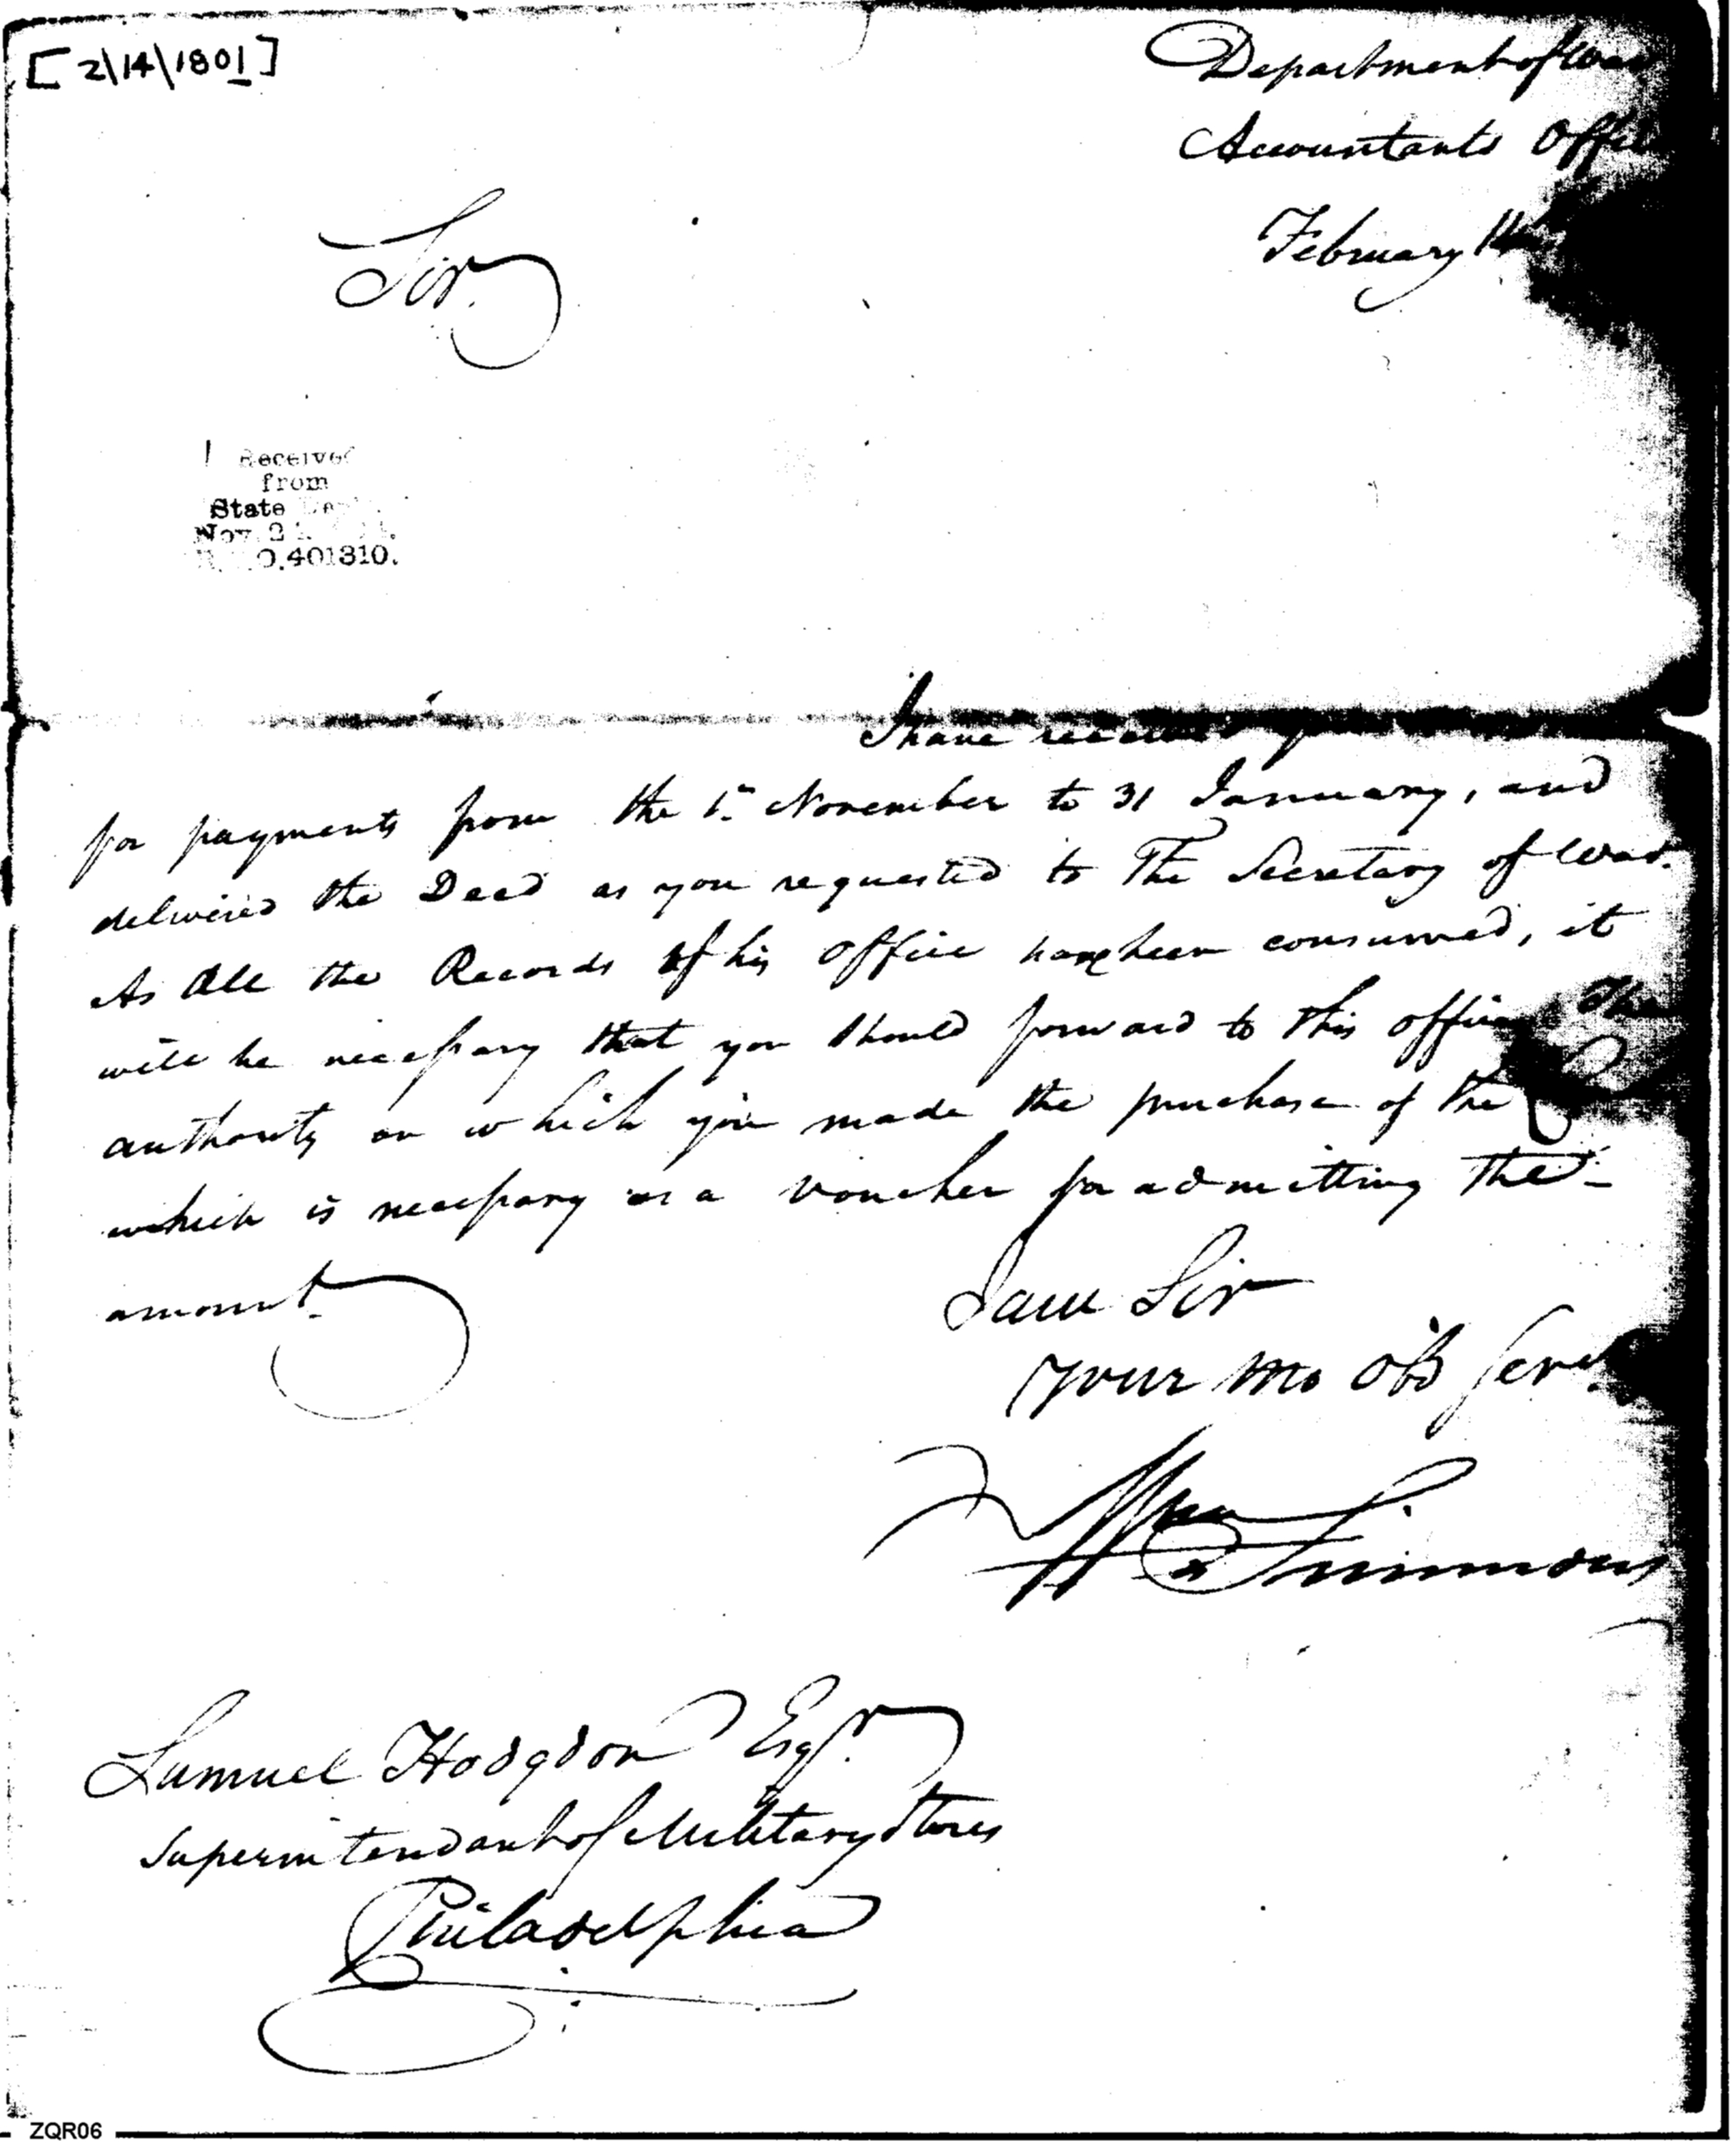 [2\14\1801]
Department of War
Accountants Office
February 14
Sir
Received
from
State Dep
Nov 2
O.401310.
I have received
for payments from the 1st November to 31 January, and
delivered the Deed as you requested to The Secretary of War.
As All the Records of his Office have been consumed, it
will be necessary that you should forward to this office The
authority on which you made the purchase of the
which is necessary as a voucher for admitting the
amount.
I am Sir
Your Mo Ob Servt
Wm Simmons
Samuel Hodgdon Esqr.
Superintendant of Military Stores
Philadelphia
ZQR06